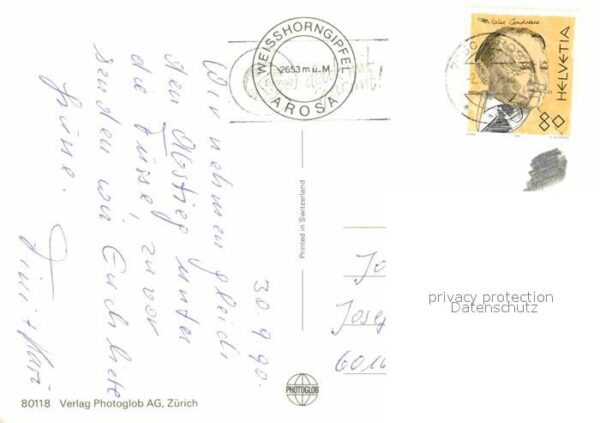 Wir nehmen gleich
den Abstieg unter
die Füsse, zuvor
senden wir Euch liebe
Grüsse.
30.9.90.
WEISSHORNGIPFEL
2653 m ü. M.
AROSA
HELVETIA
80
Printed in Switzerland
Jo
Josef
6016
privacy protection
Datenschutz
PHOTOGLOB
80118 Verlag Photoglob AG, Zürich